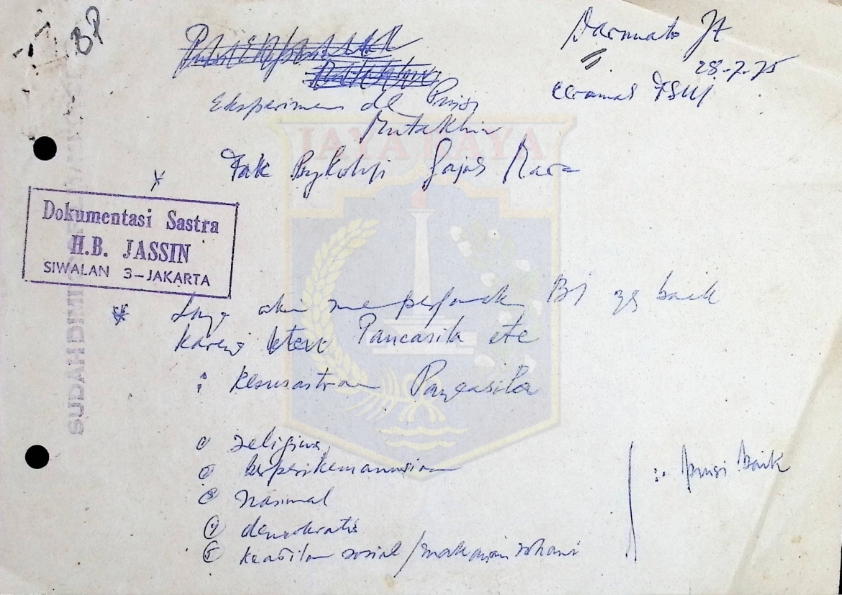 BP
Darmanto Jt
28-7-75
ceramah FSUI
Eksperimen dl Puisi
Mutakhir
Fak Psykologi Gajah Mada
Dokumentasi Sastra
H.B. JASSIN
SIWALAN 3-JAKARTA
JAYA RAYA
Saya akan Puisi yg baik
karena Pancasila etc
: kesusastraan Pancasila
1 religius
2 berperikemanusiaan
3 nasional
4 demokratis
5 keadilan sosial / makanan rohani
:. puisi baik
SUDAH DIMI